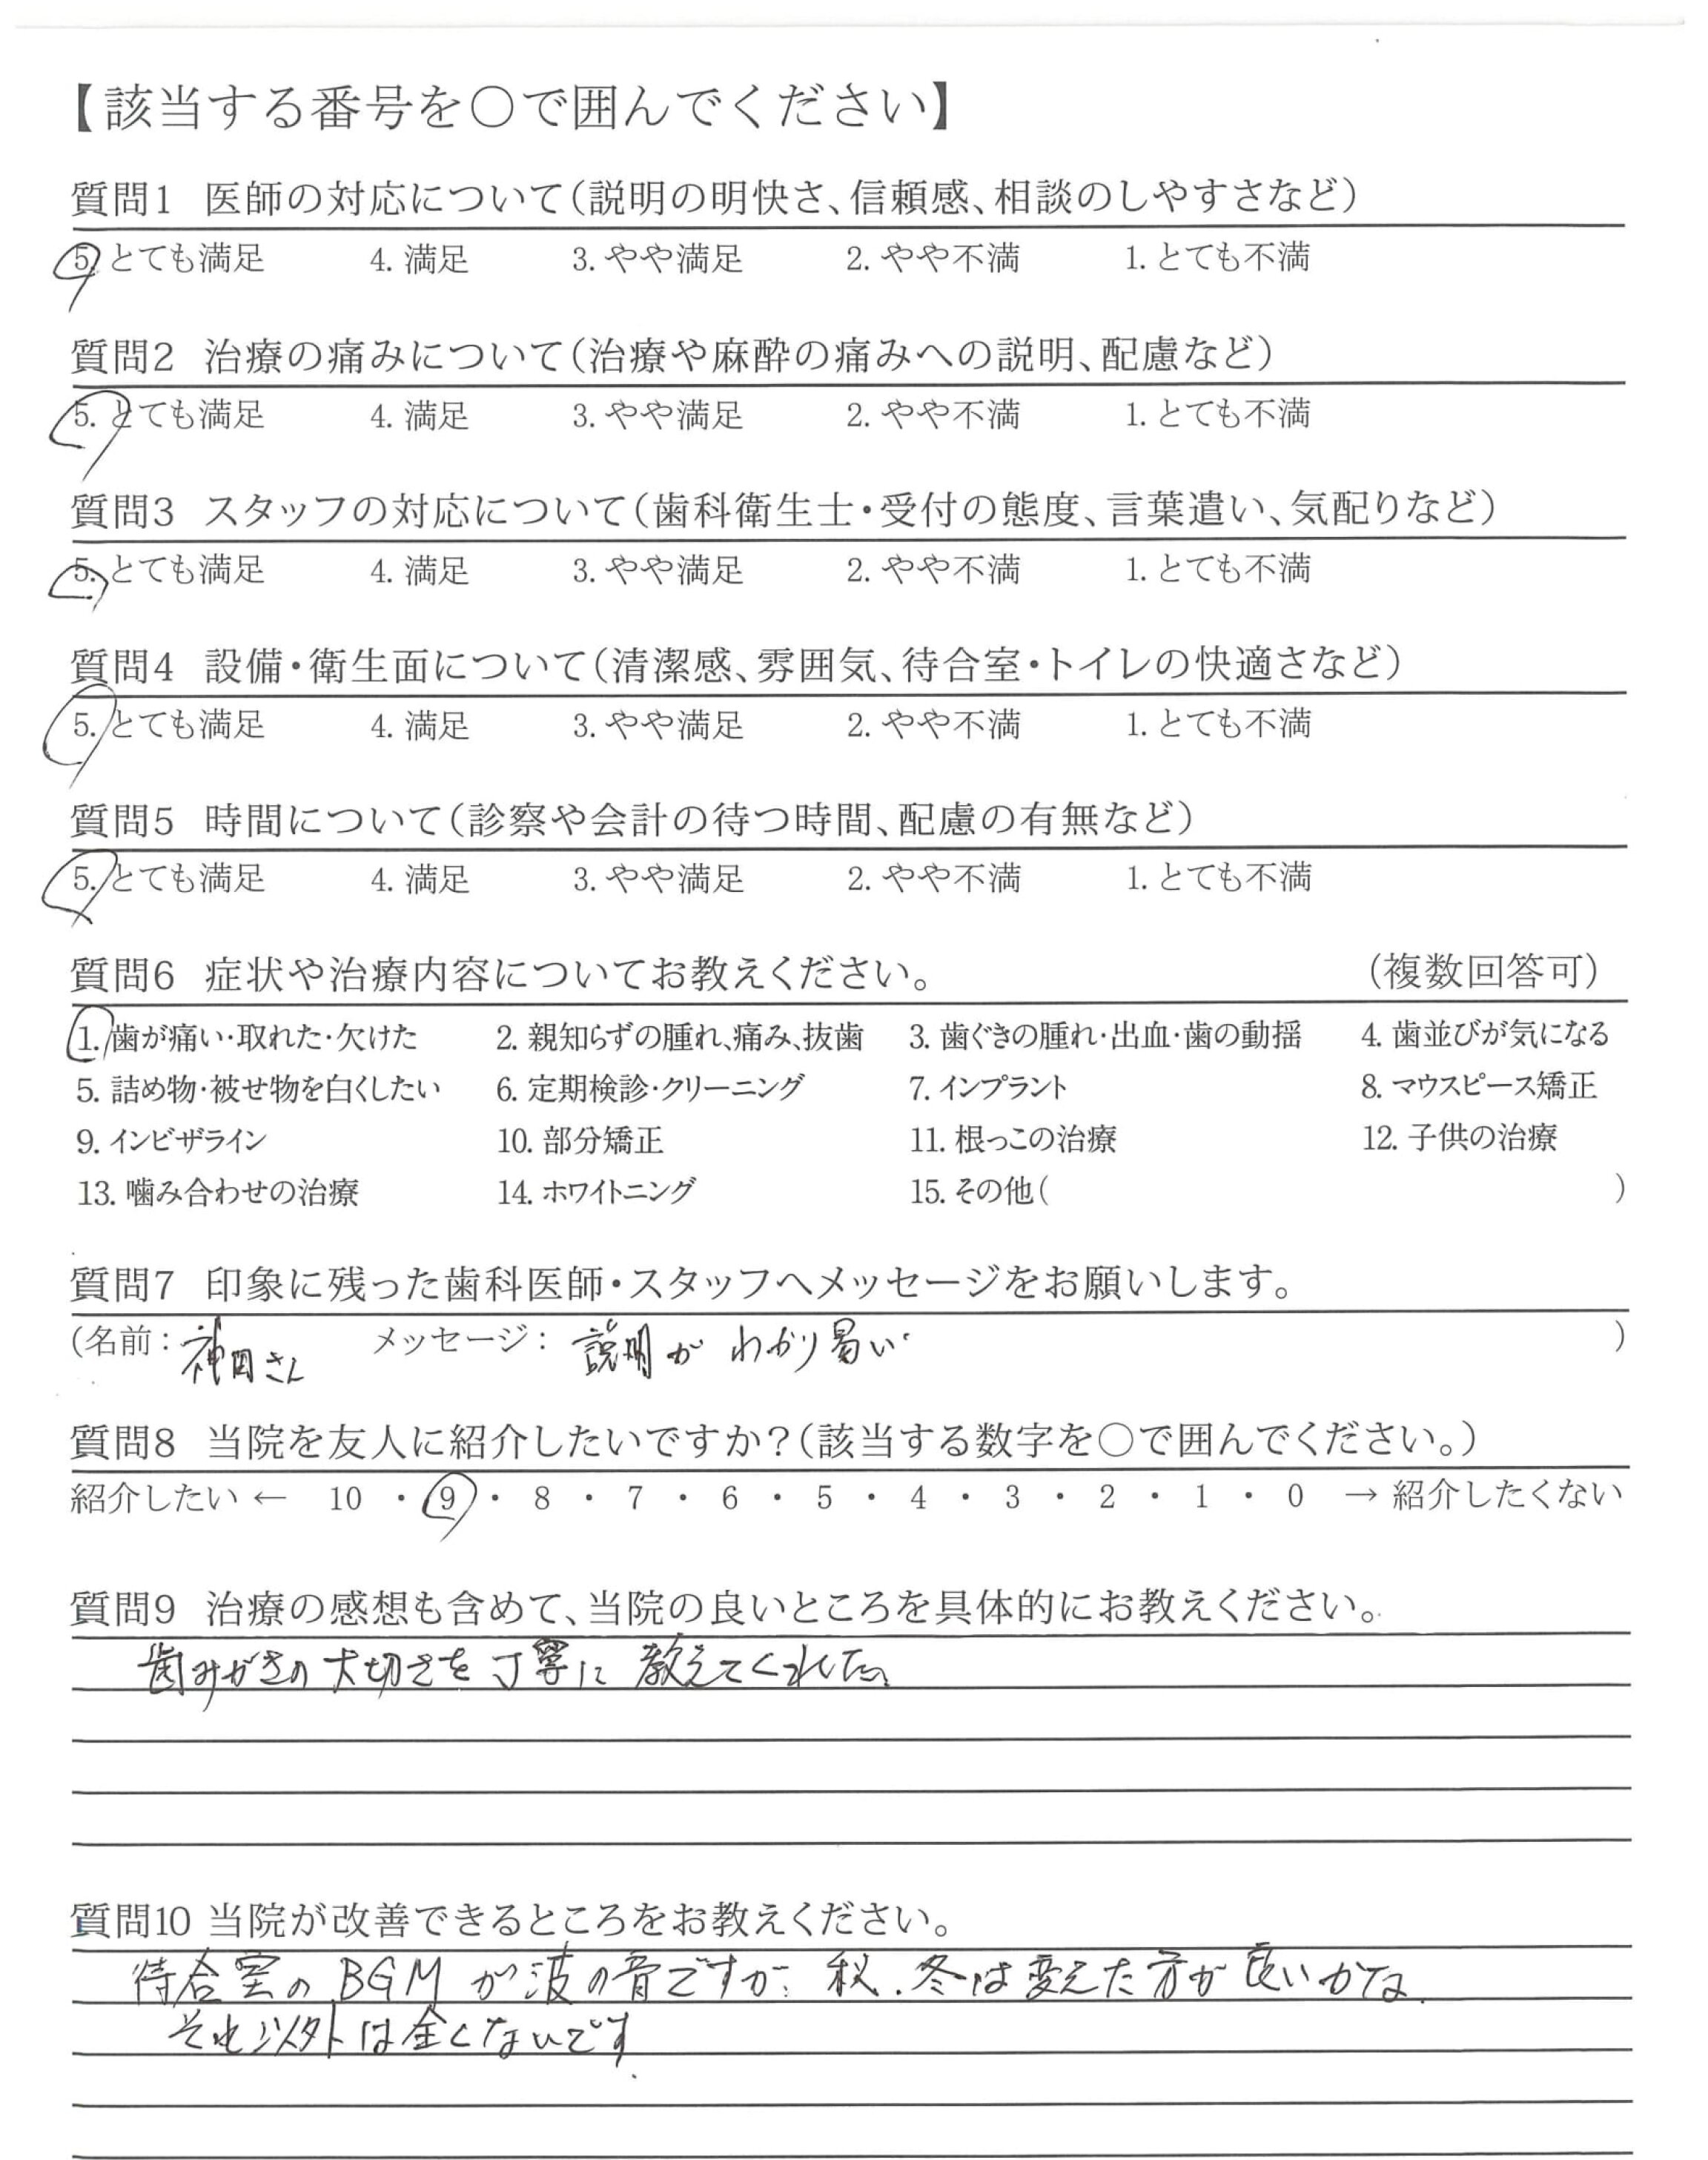 【該当する番号を○で囲んでください】
質問1 医師の対応について(説明の明快さ、信頼感、相談のしやすさなど)
5. とても満足 4. 満足 3. やや満足 2. やや不満 1. とても不満
質問2 治療の痛みについて(治療や麻酔の痛みへの説明、配慮など)
5. とても満足 4. 満足 3. やや満足 2. やや不満 1. とても不満
質問3 スタッフの対応について(歯科衛生士・受付の態度、言葉遣い、気配りなど)
5. とても満足 4. 満足 3. やや満足 2. やや不満 1. とても不満
質問4 設備・衛生面について(清潔感、雰囲気、待合室・トイレの快適さなど)
5. とても満足 4. 満足 3. やや満足 2. やや不満 1. とても不満
質問5 時間について(診察や会計の待つ時間、配慮の有無など)
5. とても満足 4. 満足 3. やや満足 2. やや不満 1. とても不満
質問6 症状や治療内容についてお教えください。 (複数回答可)
1. 歯が痛い・取れた・欠けた 2. 親知らずの腫れ、痛み、抜歯 3. 歯ぐきの腫れ・出血・歯の動揺 4. 歯並びが気になる
5. 詰め物・被せ物を白くしたい 6. 定期検診・クリーニング 7. インプラント 8. マウスピース矯正
9. インビザライン 10. 部分矯正 11. 根っこの治療 12. 子供の治療
13. 噛み合わせの治療 14. ホワイトニング 15. その他( )
質問7 印象に残った歯科医師・スタッフへメッセージをお願いします。
(名前: 神田さん メッセージ: 説明がわかり易い )
質問8 当院を友人に紹介したいですか?(該当する数字を○で囲んでください。)
紹介したい ← 10 ・ 9 ・ 8 ・ 7 ・ 6 ・ 5 ・ 4 ・ 3 ・ 2 ・ 1 ・ 0 → 紹介したくない
質問9 治療の感想も含めて、当院の良いところを具体的にお教えください。
歯みがきの大切さを丁寧に教えてくれた。
質問10 当院が改善できるところをお教えください。
待合室のBGMが波の音ですが、秋、冬は変えた方が良いかな
それ以外は全くないです